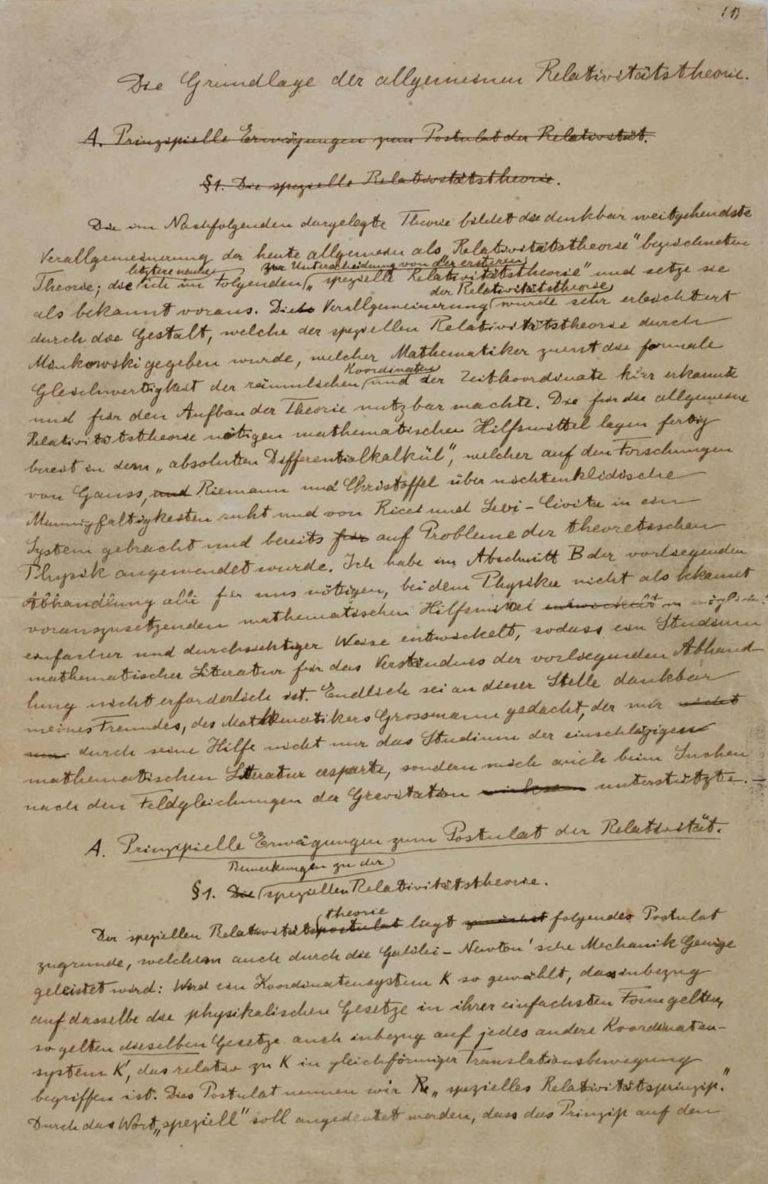 Die Grundlage der allgemeinen Relativitätstheorie.
A. Prinzipielle Erwägungen zum Postulat der Relativität.
§1. Die spezielle Relativitätstheorie.
Die im Nachfolgenden dargelegte Theorie bildet die denkbar weitgehendste
Verallgemeinerung der heute allgemein als „Relativitätstheorie" bezeichneten
letztere nenne zur Unterscheidung von der ersteren
Theorie; die ich im Folgenden „spezielle Relativitätstheorie" und setze sie
der Relativitätstheorie
als bekannt voraus. Die Verallgemeinerung wurde sehr erleichtert
durch die Gestalt, welche der speziellen Relativitätstheorie durch
Minkowski gegeben wurde, welcher Mathematiker zuerst die formale
Koordinaten
Gleichwertigkeit der räumlichen und der Zeitkoordinate klar erkannte
und für den Aufbau der Theorie nutzbar machte. Die für die allgemeine
Relativitätstheorie nötigen mathematischen Hilfsmittel lagen fertig
bereit in dem „absoluten Differentialkalkül", welcher auf den Forschungen
von Gauss, und Riemann und Christoffel über nichteuklidische
Mannigfaltigkeiten ruht und von Ricci und Levi-Civita in ein
System gebracht und bereits für auf Probleme der theoretischen
Physik angewendet wurde. Ich habe im Abschnitt B der vorliegenden
Abhandlung alle für uns nötigen, bei dem Physiker nicht als bekannt
vorauszusetzenden mathematischen Hilfsmittel entwickelt in möglichst
einfacher und durchsichtiger Weise entwickelt, sodass ein Studium
mathematischer Literatur für das Verständnis der vorliegenden Abhand
lung nicht erforderlich ist. Endlich sei an dieser Stelle dankbar
meines Freundes, des Mathematikers Grossmann gedacht, der mir nicht
nur durch seine Hilfe nicht nur das Studium der einschlägigen
mathematischen Literatur ersparte, sondern mich auch beim Suchen
nach den Feldgleichungen der Gravitation unterstützte.
A. Prinzipielle Erwägungen zum Postulat der Relativität.
Bemerkungen zu der
§1. Die speziellen Relativitätstheorie.
theorie
Der speziellen Relativitätspostulat liegt folgendes Postulat
zugrunde, welchem auch durch die Galilei-Newton'sche Mechanik Genüge
geleistet wird: Wird ein Koordinatensystem K so gewählt, dass inbezug
auf dasselbe die physikalischen Gesetze in ihrer einfachsten Form gelten,
so gelten dieselben Gesetze auch inbezug auf jedes andere Koordinaten-
system K', das relativ zu K in gleichförmiger Translationsbewegung
begriffen ist. Dies Postulat nennen wir „spezielles Relativitätsprinzip."
Durch das Wort „speziell" soll angedeutet werden, dass das Prinzip auf den